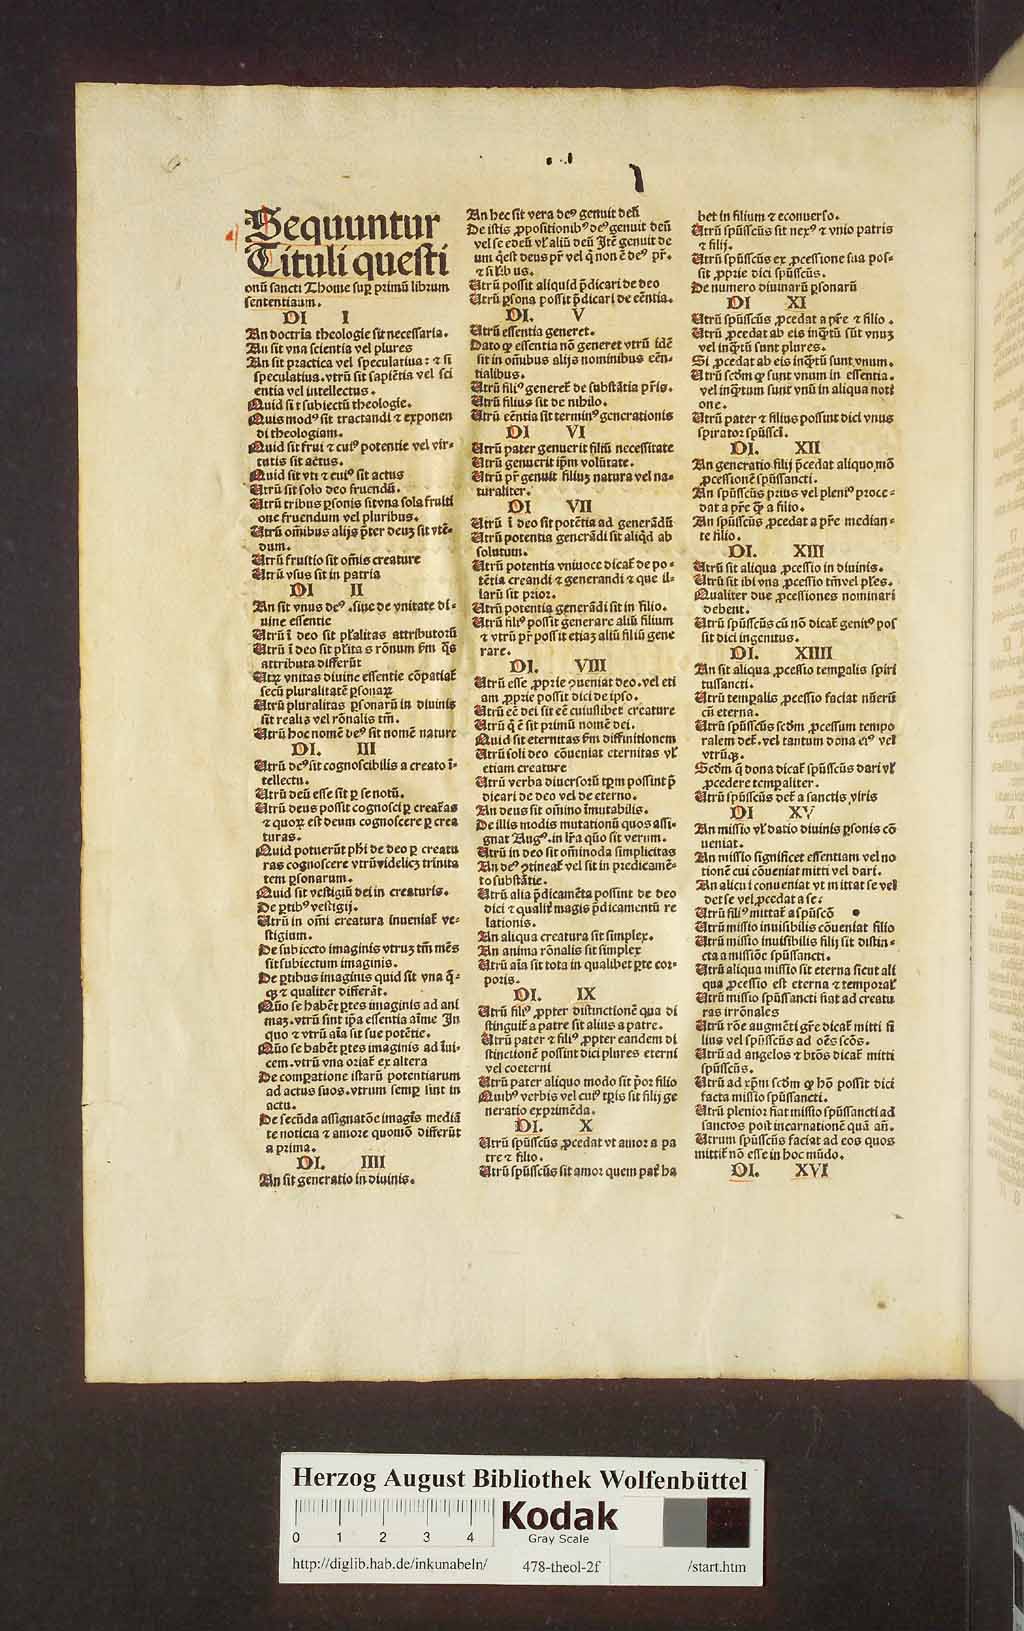 Sequuntur
Tituli questi
onũ sancti Thome suꝑ primũ librum
sententiarum.
DI I
An doctrīa theologie sit necessaria.
An sit vna scientia vel plures
An sit practica vel speculatiua: ⁊ si
speculatiua. vtrũ sit sapiẽtia vel sci
entia vel intellectus.
Quid sit subiectũ theologie.
Quis modꝰ sit tractandi ⁊ exponen
di theologiam.
Quid sit frui ⁊ cuiꝰ potentie vel vir-
tutis sit actus.
Quid sit vti ⁊ cuiꝰ sit actus
Utrũ sit solo deo fruendũ.
Utrũ tribus ꝑsonis sit vna sola fruiti
one fruendum vel pluribus.
Utrũ om̃ibus alijs p̃ter deuʒ sit vtẽ-
dum.
Utrũ fruitio sit om̃is creature
Utrũ vsus sit in patria
DI II
An sit vnus deꝰ. siue de vnitate di-
uine essentie
Utrũ ĩ deo sit pl̃alitas attributorũ
Utrũ ĩ deo sit pl̃ita s rõnum ẜm q̃s
attributa differũt
Utꝝ vnitas diuine essentie cõpatiat̃
secũ pluralitatẽ ꝑsonaꝝ
Utrũ pluralitas ꝑsonarũ in diuinis
sit realis vel rõnalis tm̃.
Utrũ hoc nomẽ deꝰ sit nomẽ nature
DI. III
Utrũ deꝰ sit cognoscibilis a creato ĩ-
tellectu.
Utrũ deũ esse sit ꝑ se notũ.
Utrũ deus possit cognosci ꝑ creat̃as
⁊ quoꝝ est deum cognoscere ꝑ crea
turas.
Quid potuerũt ph̃i de deo ꝑ creatu
ras cognoscere vtrũ videlicʒ trinita
tem ꝑsonarum.
Quid sit vestigiũ dei in creaturis.
De ꝑtibꝰ vestigij.
Utrũ in om̃i creatura inueniat̃ ve-
stigium.
De subiecto imaginis vtruʒ tm̃ mẽs
sit subiectum imaginis.
De ꝑtibus imaginis quid sit vna q̃-
qʒ ⁊ qualiter differãt.
Quõ se habẽt ꝑtes imaginis ad ani
maʒ. vtrũ sint ip̃a essentia aĩme In
quo ⁊ vtrũ aĩa sit sue potẽtie.
Quõ se habẽt ꝑtes imaginis ad ĩui-
cem. vtrũ vna oriat̃ ex altera
De comꝑatione istarũ potentiarum
ad actus suos. vtrum sempꝑ sint in
actu.
De secũda assignatõe imagĩs mediã
te noticia ⁊ amore quomõ differũt
a prima.
DI. IIII
An sit generatio in diuinis.
An hec sit vera deꝰ genuit deũ
De istis ꝓpositionibꝰ deꝰ genuit deũ
vel se edeũ vl̃ aliũ deũ Itẽ genuit de
um q̃ est deus pr̃ vel q̃ non ẽ deꝰ pr̃.
⁊ silibus.
Utrũ possit aliquid p̃dicari de deo
Utrũ ꝑsona possit p̃dicari de eẽntia.
DI. V
Utrũ essentia generet.
Dato ꝙ essentia nõ generet vtrũ idẽ
sit in om̃ibus alijs nominibus eẽn-
tialibus.
Utrũ filiꝰ generet̃ de substãtia pr̃is.
Utrũ filius sit de nihilo.
Utrũ eẽntia sit terminꝰ generationis
DI VI
Utrũ pater genuerit filiũ necessitate
Utrũ genuerit ip̃m volũtate.
Utrũ pr̃ genuit filiuʒ natura vel na-
turaliter.
DI VII
Utrũ ĩ deo sit potẽtia ad generãdũ
Utrũ potentia generãdi sit aliqd ab
solutum.
Utrũ potentia vniuoce dicat̃ de po-
tẽtia creandi ⁊ generandi ⁊ que il-
larũ sit prior.
Utrũ potentia generãdi sit in filio.
Utrũ filiꝰ possit generare aliũ filium
⁊ vtrũ pr̃ possit etiaʒ aliũ filiũ gene
rare.
DI. VIII
Utrũ esse ꝓprie ꝯueniat deo. vel eti
am ꝓprie possit dici de ipso.
Utrũ eẽ dei sit eẽ cuiuslibet creature
Utrũ q̃ ẽ sit primũ nomẽ dei.
Quid sit eternitas ẜm diffinitionem
Utrũ soli deo cõueniat eternitas vl̃
etiam creature
Utrũ verba diuersorũ tp̃m possint p̃
dicari de deo vel de eterno.
An deus sit om̃ino ĩmutabilis.
De illis modis mutationũ quos assi-
gnat Augꝰ. in lr̃a quõ sit verum.
Utrũ in deo sit om̃inoda simplicitas
An deꝰ ꝯtineat̃ vel sit in predicamẽ-
to substãtie.
Utrũ alia p̃dicamẽta possint de deo
dici ⁊ qualit̃ magis p̃dicamentũ re
lationis.
An aliqua creatura sit simplex.
An anima rõnalis sit simplex
Utrũ aĩa sit tota in qualibet ꝑte cor-
poris.
DI. IX
Utrũ filiꝰ ꝓpter distinctionẽ qua di
stinguit̃ a patre sit alius a patre.
Utrũ pater ⁊ filiꝰ ꝓpter eandem di
stinctionẽ possint dici plures eterni
vel coeterni
Utrũ pater aliquo modo sit p̃or filio
Quibꝰ verbis vel cuiꝰ tp̃is sit filij ge
neratio exprimẽda.
DI. X
Utrũ sp̃usscũs ꝓcedat vt amor a pa
tre ⁊ filio.
Utrũ sp̃usscũs sit amor quem pat̃ ha
bet in filium ⁊ econuerso.
Utrũ sp̃usscũs sit nexꝰ ⁊ vnio patris
⁊ filij.
Utrũ sp̃usscũs ex ꝓcessione sua pos-
sit ꝓprie dici sp̃usscũs.
De numero diuinarũ ꝑsonarũ
DI XI
Utrũ sp̃usscũs ꝓcedat a pr̃e ⁊ filio.
Utrũ ꝓcedat ab eis inq̃tũ sũt vnuʒ
vel inq̃tũ sunt plures.
Si ꝓcedat ab eis inq̃tũ sunt vnum.
Utrũ scd̃m ꝙ sunt vnum in essentia.
vel inq̃tum sunt vnũ in aliqua noti
one.
Utrũ pater ⁊ filius possint dici vnus
spirator sp̃ussci.
DI. XII
An generatio filij p̃cedat aliquo mõ
ꝓcessionẽ sp̃ussancti.
An sp̃usscũs prius vel pleniꝰ proce-
dat a pr̃e q̃ a filio.
An sp̃usscũs ꝓcedat a pr̃e median-
te filio.
DI. XIII
Utrũ sit aliqua ꝓcessio in diuinis.
Utrũ sit ibi vna ꝓcessio tm̃ vel pl̃es.
Qualiter due ꝓcessiones nominari
debent.
Utrũ sp̃usscũs cũ nõ dicat̃ genitꝰ pos
sit dici ingenitus.
DI. XIIII
An sit aliqua ꝓcessio temꝑalis spiri
tussancti.
Utrũ temꝑalis ꝓcessio faciat nũerũ
cũ eterna.
Utrũ sp̃usscũs scd̃m ꝓcessum tempo
ralem det̃. vel tantum dona eiꝰ vel
vtrũqʒ.
Scd̃m q̃ dona dicat̃ sp̃usscũs dari vl̃
ꝓcedere temꝑaliter.
Utrũ sp̃usscũs det̃ a sanctis viris
DI XV
An missio vl̃ datio diuinis ꝑsonis cõ
ueniat.
An missio significet essentiam vel no
tionẽ cui cõueniat mitti vel dari.
An alicui conueniat vt mittat se vel
det se vel ꝓcedat a se.
Utrũ filiꝰ mittat̃ a sp̃uscõ
Utrũ missio inuisibilis cõueniat filio
Utrũ missio inuisibilis filij sit distin-
cta a missiõe sp̃ussancti.
Utrũ aliqua missio sit eterna sicut ali
qua ꝓcessio est eterna ⁊ temporal̃
Utrũ missio sp̃ussancti fiat ad creatu
ras irrõnales
Utrũ rõe augmẽti gr̃e dicat̃ mitti fi
lius vel sp̃usscũs ad oẽs scõs.
Utrũ ad angelos ⁊ btõs dicat̃ mitti
sp̃usscũs.
Utrũ ad xp̃m scd̃m ꝙ hõ possit dici
facta missio sp̃ussancti.
Utrũ plenior fiat missio sp̃ussancti ad
sanctos post incarnationẽ quã añ.
Utrum sp̃usscũs faciat ad eos quos
mittit̃ nõ esse in hoc mũdo.
DI. XVI
Herzog August Bibliothek Wolfenbüttel
0 1 2 3 4
Kodak
Gray Scale
http://diglib.hab.de/inkunabeln/ 478-theol-2f /start.htm